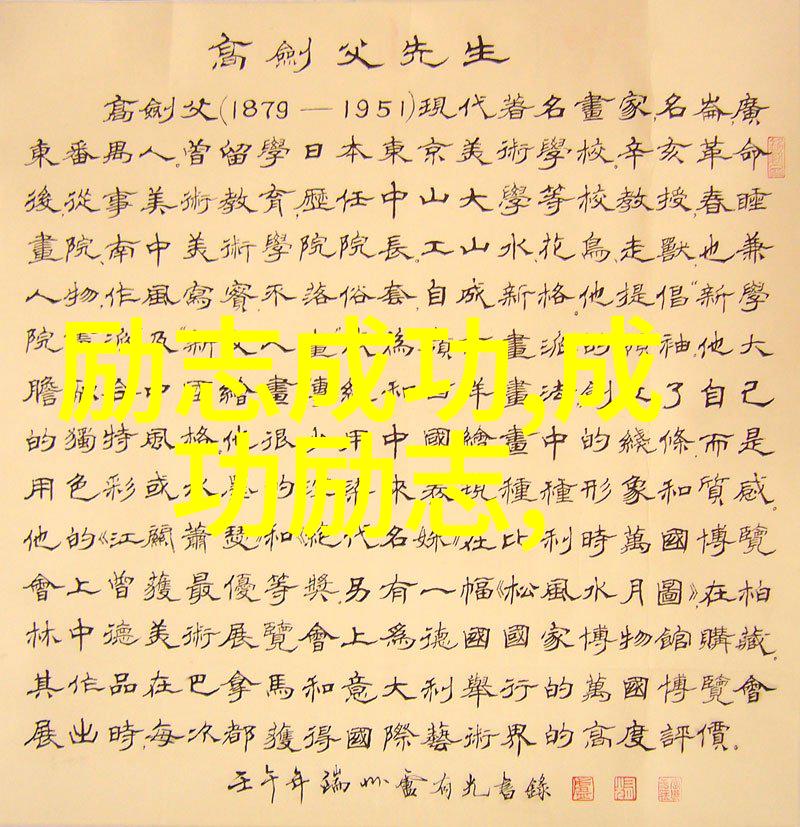 高劍父先生
高劍父(1879—1951)現代著名畫家,名崙,廣
東番禺人。曾留學日本東京美術學校。辛亥革命
後,從事美術教育,歷任中山大學等校教授,春睡
畫院、南中美術學院院長。工山水、花鳥、走獸,也兼
人物,作風寫實,不落俗套,自成新格。他提倡“新學
院 派及“新 人畫” 為 畫派的 袖。他大
膽 合中 繪畫傳統和 洋畫法,創 了自己
的獨特風格。他很 用中國繪畫中的綫條,而是
用色彩或水墨的 染來表現種種形象和質感。
他的《江關蕭瑟》和《絕代名姝》在比利時萬國博覽
會上曾獲最優等獎。另有一幅《松風水月圖》,在柏
林中德美術展覽會上爲德國國家博物館購藏。
其作品在巴拿馬和意大利舉行的萬國博覽會
展出時,每次都獲得國際藝術界的高度評價。
壬午年端州 有光書錄
励志成功,成
功励志,